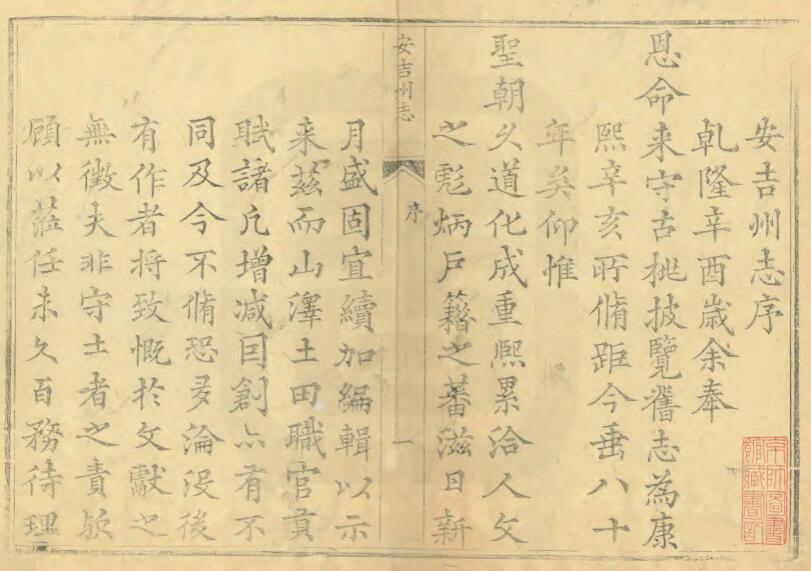 安吉州志序
乹隆辛酉歲余奉
恩命来守古桃披覽舊志為康
熙辛亥所脩距今垂八十
年矣仰惟
聖朝久道化成重熙累洽人文
之彪炳戶籍之蕃滋日新
安吉州志
序
一
月盛固宜續加編輯以示
来茲而山澤土田職官貢
賦諸凡增減因創亦有不
同及今不脩恐多淪沒後
有作者將致慨於文獻之
無徵夫非守土者之責歟
顧以蒞任未久百務待理